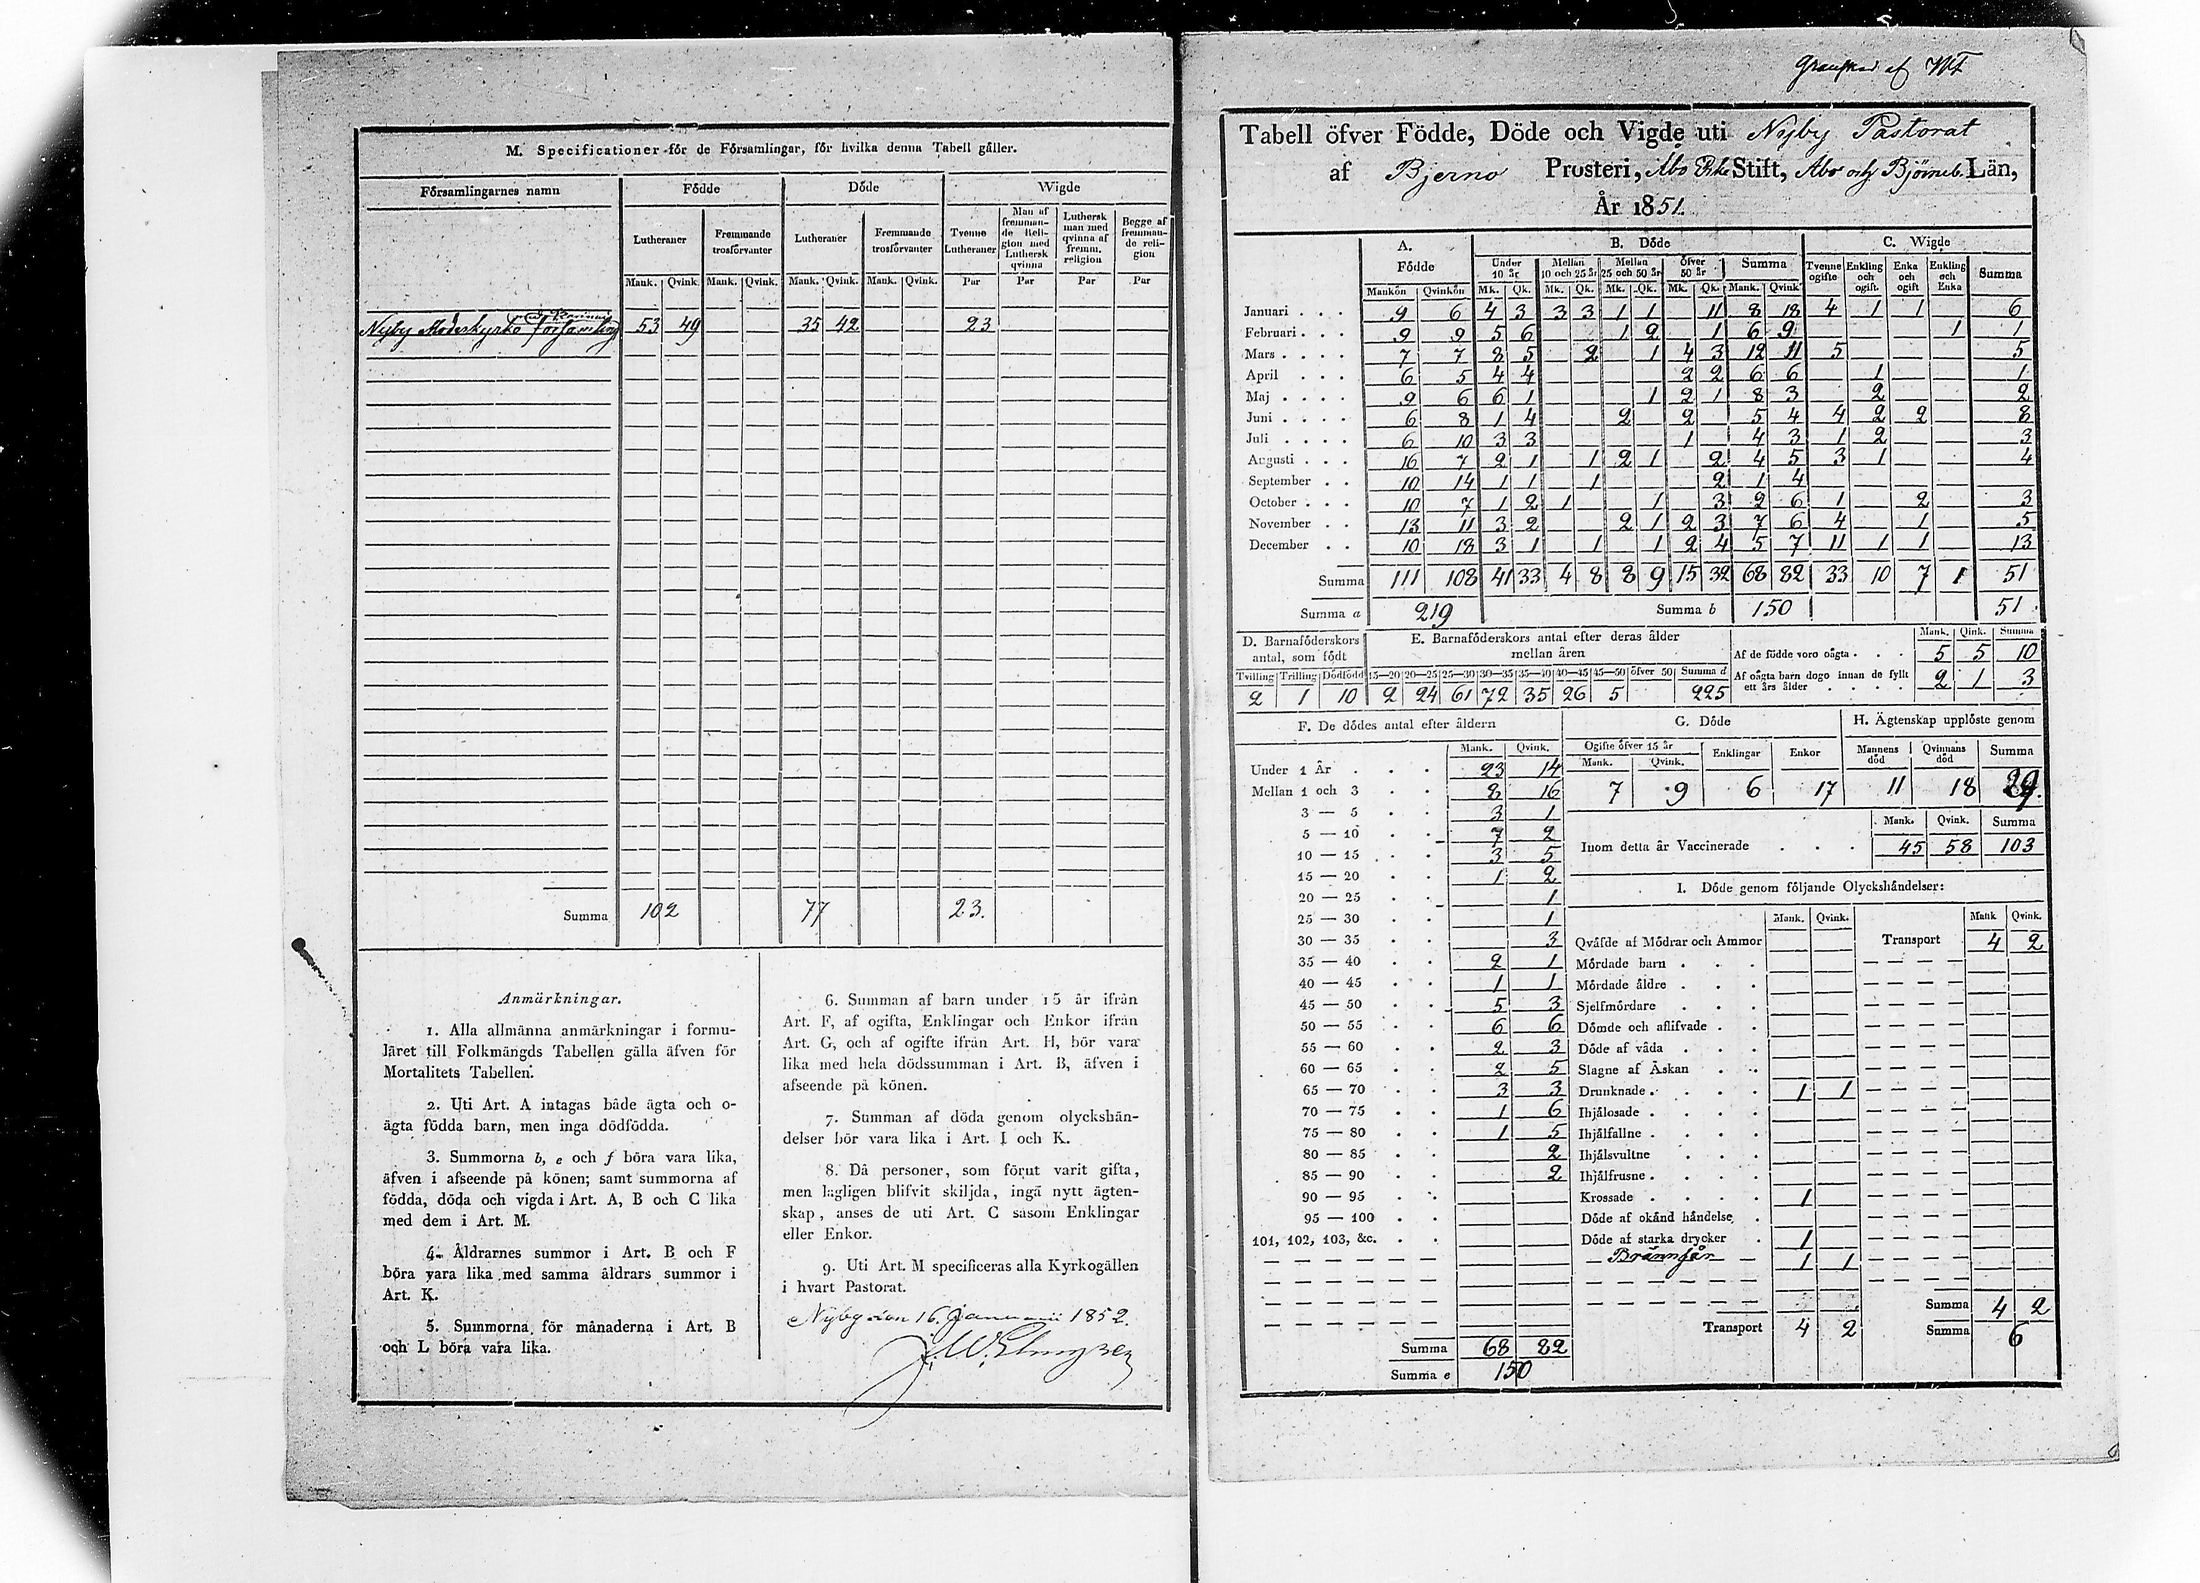 M. Specificationer för de Församlingar, för hvilka denna Tabell gäller.
Församlingarnes namn | Födde | Döde | Wigde
Lutheraner | Fremmande trosförvanter | Lutheraner | Fremmande trosförvanter | Tvenne Lutheraner | Man af fremmande Religion med Luthersk qvinna | Luthersk man med qvinna af fremm. religion | Begge af fremmande religion
Mank. Qvink. Mank. Qvink. Mank. Qvink. Mank. Qvink. Par Par Par Par
Nyby Moderkyrko församling 53 49 35 42 23
Summa 102 77 23.
Anmärkningar.
1. Alla allmänna anmärkningar i formu-
läret till Folkmängds Tabellen gälla äfven för
Mortalitets Tabellen.
2. Uti Art. A intagas både ägta och o-
ägta födda barn, men inga dödfödda.
3. Summorna b, e och f böra vara lika,
äfven i afseende på könen; samt summorna af
födda, döda och vigda i Art. A, B och C lika
med dem i Art. M.
4. Åldrarnes summor i Art. B och F
böra vara lika med samma åldrars summor i
Art. K.
5. Summorna för månaderna i Art. B
och L böra vara lika.
6. Summan af barn under 15 år ifrån
Art. F, af ogifta, Enklingar och Enkor ifrån
Art. G, och af ogifte ifrån Art. H, bör vara
lika med hela dödssumman i Art. B, äfven i
afseende på könen.
7. Summan af döda genom olyckshän-
delser bör vara lika i Art. I och K.
8. Då personer, som förut varit gifta,
men lagligen blifvit skiljda, ingå nytt ägten-
skap, anses de uti Art. C såsom Enklingar
eller Enkor.
9. Uti Art. M specificeras alla Kyrkogällen
i hvart Pastorat.
Nyby den 16. Januarii 1852.
Tabell öfver Födde, Döde och Vigde uti Nyby Pastorat
af Bjerno Prosteri, Åbo Stift, Åbo och Björneb. Län,
År 1851.
A. Födde | B. Döde | C. Wigde
Under 10 år | Mellan 10 och 25 år | Mellan 25 och 50 år | öfver 50 år | Summa | Tvenne ogifte | Enkling och ogift. | Enka och ogift | Enkling och Enka | Summa
Mankön Qvinkön Mk. Qk. Mk. Qk. Mk. Qk. Mk. Qk. Mank. Qvink
Januari 9 6 4 3 3 3 1 1 11 8 18 4 1 1 6
Februari 9 9 5 6 1 2 1 6 9 1 1
Mars 7 7 8 5 2 1 4 3 12 11 5 5
April 6 5 4 4 2 2 6 6 1 1
Maj 9 6 6 1 1 2 1 8 3 2 2
Juni 6 8 1 4 2 2 5 4 4 2 2 8
Juli 6 10 3 3 1 4 3 1 2 3
Augusti 16 7 2 1 1 2 1 2 4 5 3 1 4
September 10 14 1 1 1 2 1 4
October 10 7 1 2 1 1 3 2 6 1 2 3
November 13 11 3 2 2 1 2 3 7 6 4 1 5
December 10 18 3 1 1 1 2 4 5 7 11 1 1 13
Summa 111 108 41 33 4 8 8 9 15 32 68 82 33 10 7 1 51
Summa a 219 Summa b 150 51
D. Barnaföderskors antal, som födt
Tvilling Trilling Dödfödd
2 1 10
E. Barnaföderskors antal efter deras ålder mellan åren
15—20 20—25 25—30 30—35 35—40 40—45 45—50 öfver 50 Summa d
2 24 61 72 35 26 5 225
Mank. Qink. Summa
Af de födde voro oägta 5 5 10
Af oägta barn dogo innan de fyllt ett års ålder 2 1 3
F. De dödes antal efter åldern
Mank. Qvink.
Under 1 År 23 14
Mellan 1 och 3 8 16
3 — 5 3 1
5 — 10 7 2
10 — 15 3 5
15 — 20 1 2
20 — 25 1
25 — 30 1
30 — 35 3
35 — 40 2 1
40 — 45 1 1
45 — 50 5 3
50 — 55 6 6
55 — 60 2 3
60 — 65 2 5
65 — 70 3 3
70 — 75 1 6
75 — 80 1 5
80 — 85 2
85 — 90 2
90 — 95
95 — 100
101, 102, 103, &c.
Summa 68 82
Summa e 150
G. Döde
Ogifte öfver 15 år | Enklingar | Enkor
Mank. Qvink.
7 9 6 17
H. Ägtenskap upplöste genom
Mannens död | Qvinnans död | Summa
11 18 29
Mank. Qvink. Summa
Inom detta år Vaccinerade 45 58 103
I. Döde genom följande Olyckshändelser:
Mank. Qvink. Mank Qvink.
Qväfde af Mödrar och Ammor Transport 4 2
Mördade barn
Mördade äldre
Sjelfmördare
Dömde och aflifvade
Döde af våda
Slagne af Åskan
Drunknade 1 1
Ihjälosade
Ihjälfallne
Ihjälsvultne
Ihjälfrusne
Krossade 1
Döde af okänd händelse
Döde af starka drycker 1
Brännsår 1 1
Summa 4 2
Transport 4 2 Summa 6